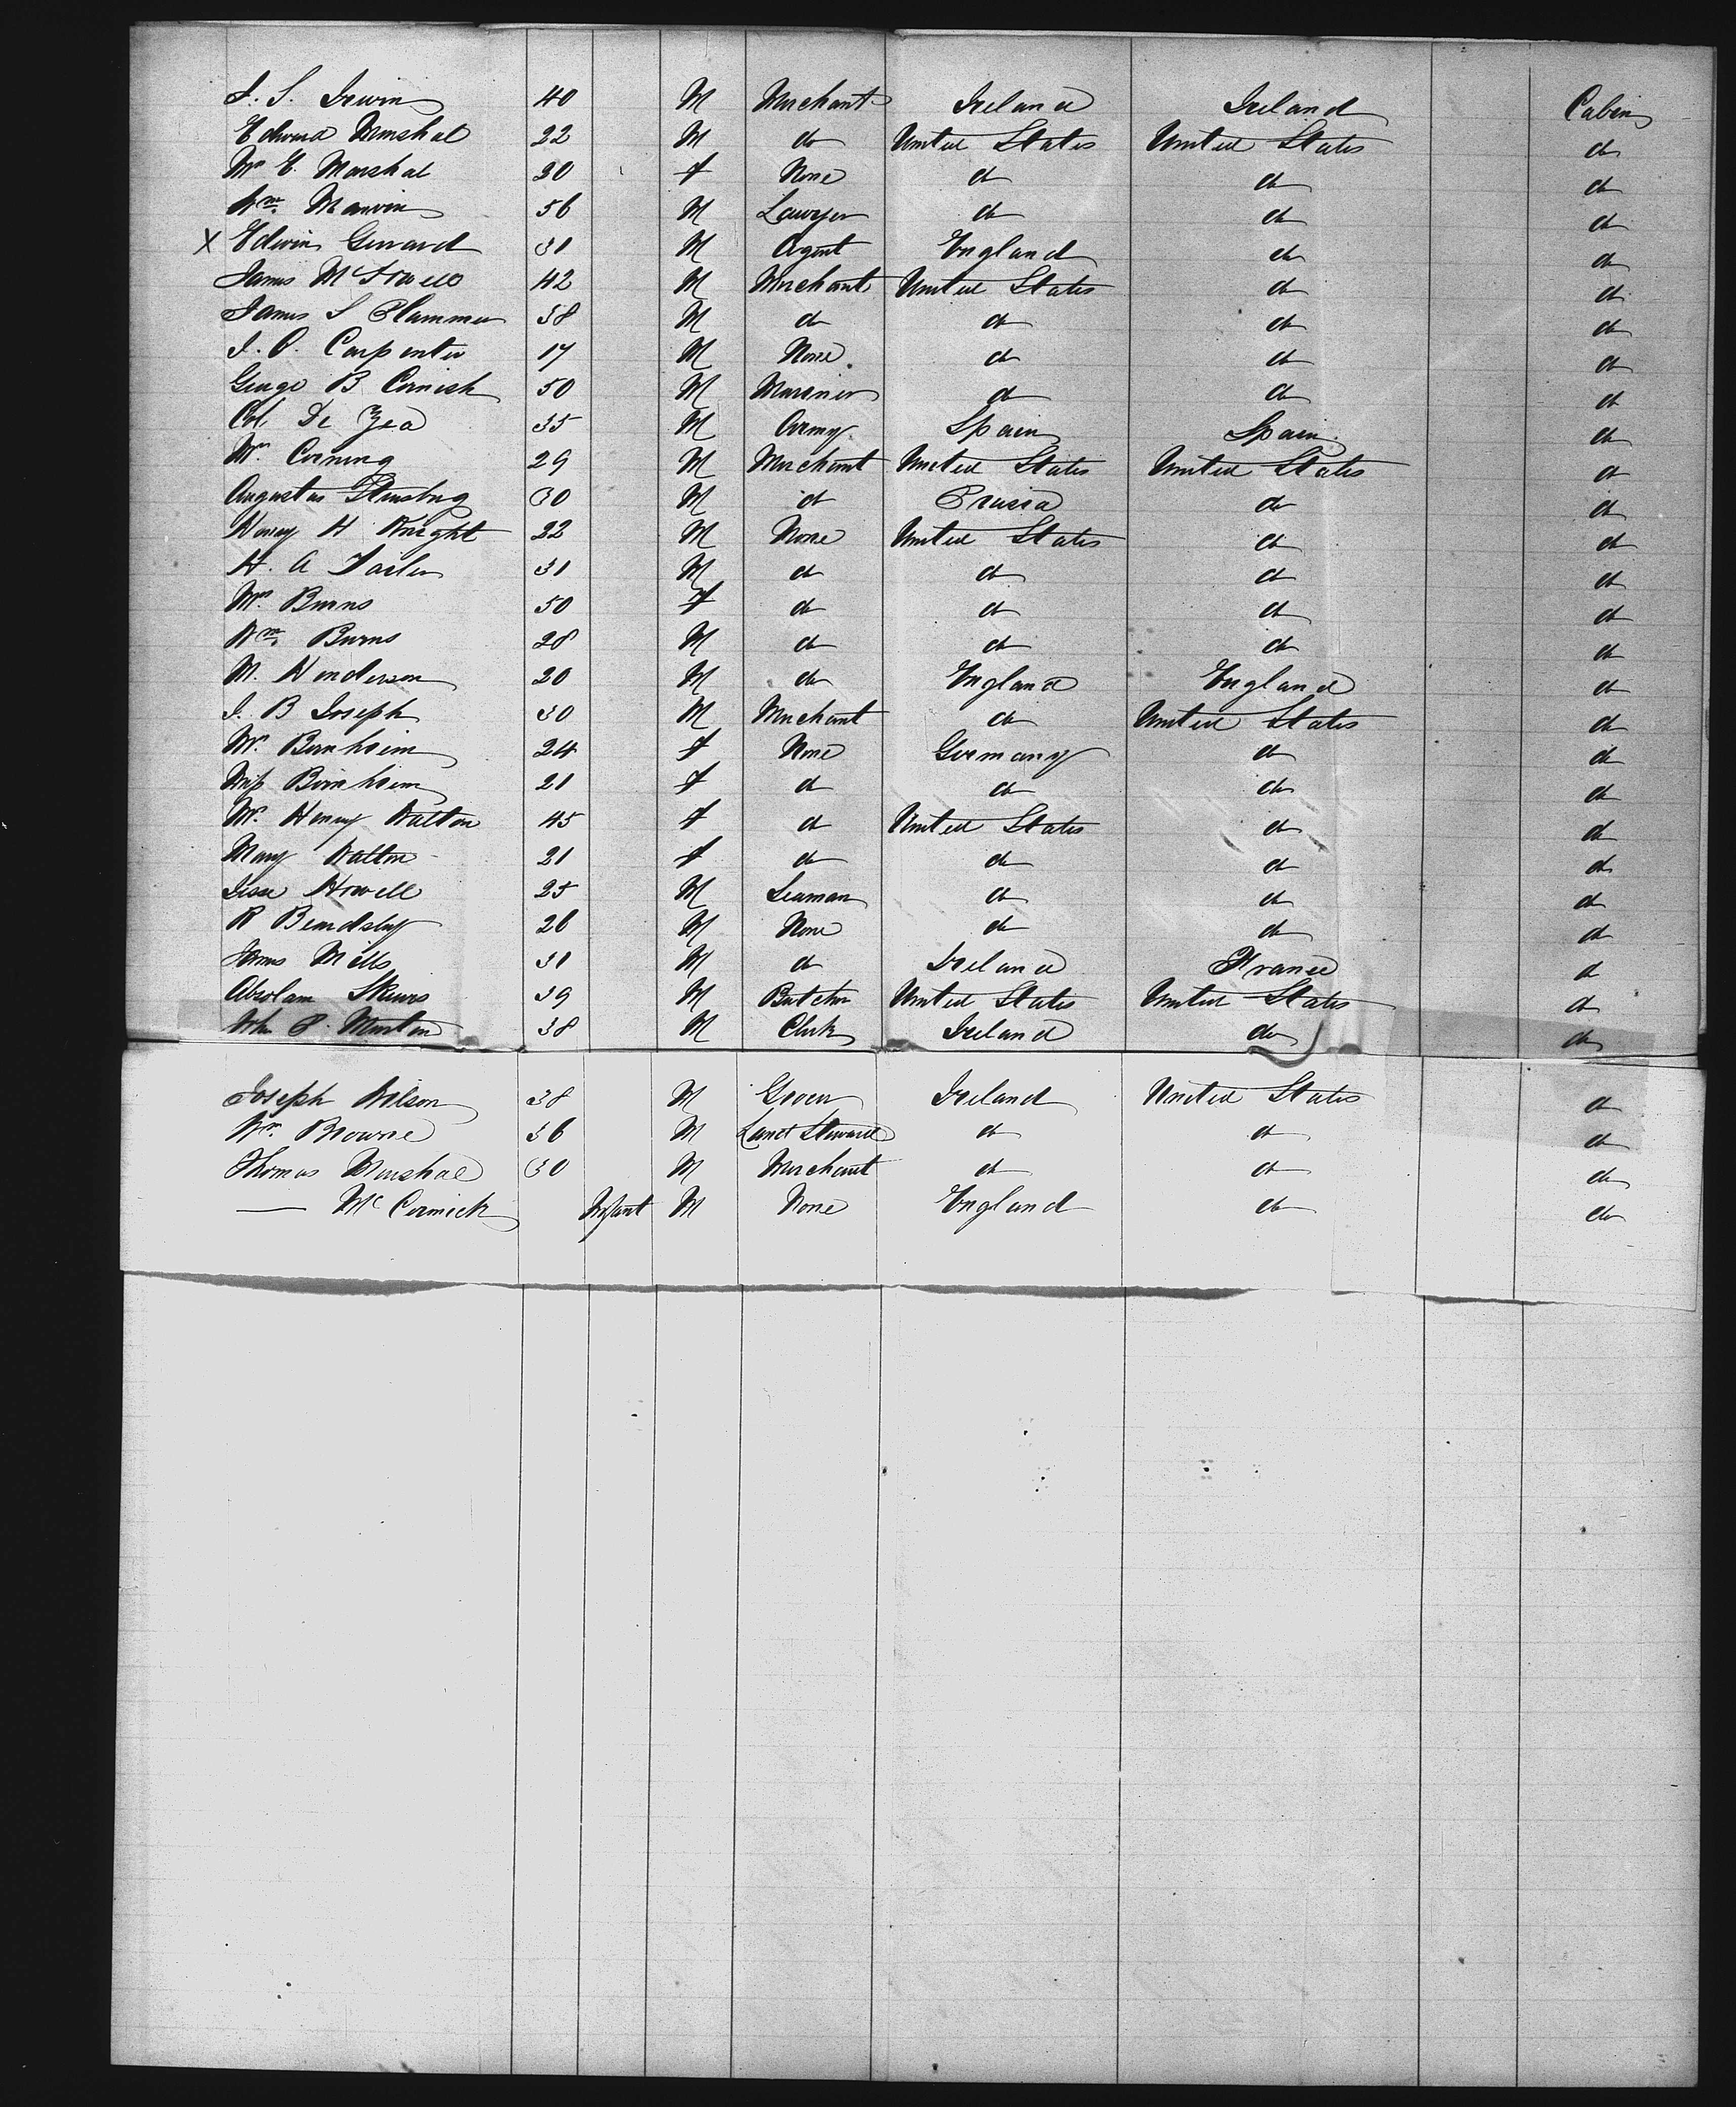 J. S. Irwin 40 M Merchant Ireland Ireland Cabin
Edward Marshal 22 M do United States United States do
Mrs E. Marshal 20 f None do do do
Wm. Marvin 56 M Lawyer do do do
X Edwin Gerrard 31 M Agent England do do
James McDowell 42 M Merchant United States do do
James S Plummer 38 M do do do do
J. O. Carpenter 17 M None do do do
George B Cornish 50 M Marriner do do do
Col De Zea 35 M Army Spain Spain do
Mr. Corning 29 M Merchant United States United States do
Augustus 30 M do Prussia do do
Henry H Knight 22 M None United States do do
H. A 31 M do do do do
Mrs. Burns 50 f do do do do
Wm. Burns 28 M do do do do
M. Henderson 20 M do England England do
J. B Joseph 30 M Merchant do United States do
Mrs. Bernheim 24 f None Germany do do
Miss Bernheim 21 f do do do do
Mrs. Henry Walton 45 f do United States do do
Mary Walton 21 f do do do do
Jesse Howell 25 M Seaman do do do
R Beardsley 26 M None do do do
James Mills 31 M do Ireland France do
Absolam Skewes 39 M Butcher United States United States do
P. Martin 38 M Clerk Ireland do do
Joseph Wilson 38 M Grocer Ireland United States do
Wm. Browne 36 M Land Steward do do do
Thomas Marshal 30 M Merchant do do do
— McCormick Infant M None England do do